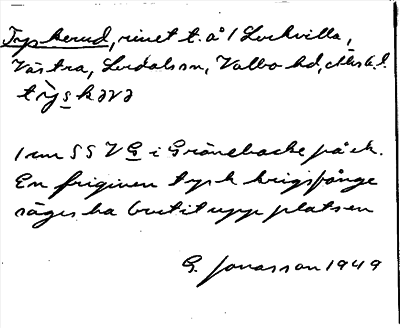 Tyskerud, rivet t. å 1 Lockvilla,
Västra, Lerdalssn, Valbo hd, Älvsb. l.
1 km SSV G i Gröneback på ek.
En frigiven tysk krigsfånge
säges ha brutit upp platsen
G. Jonasson 1949